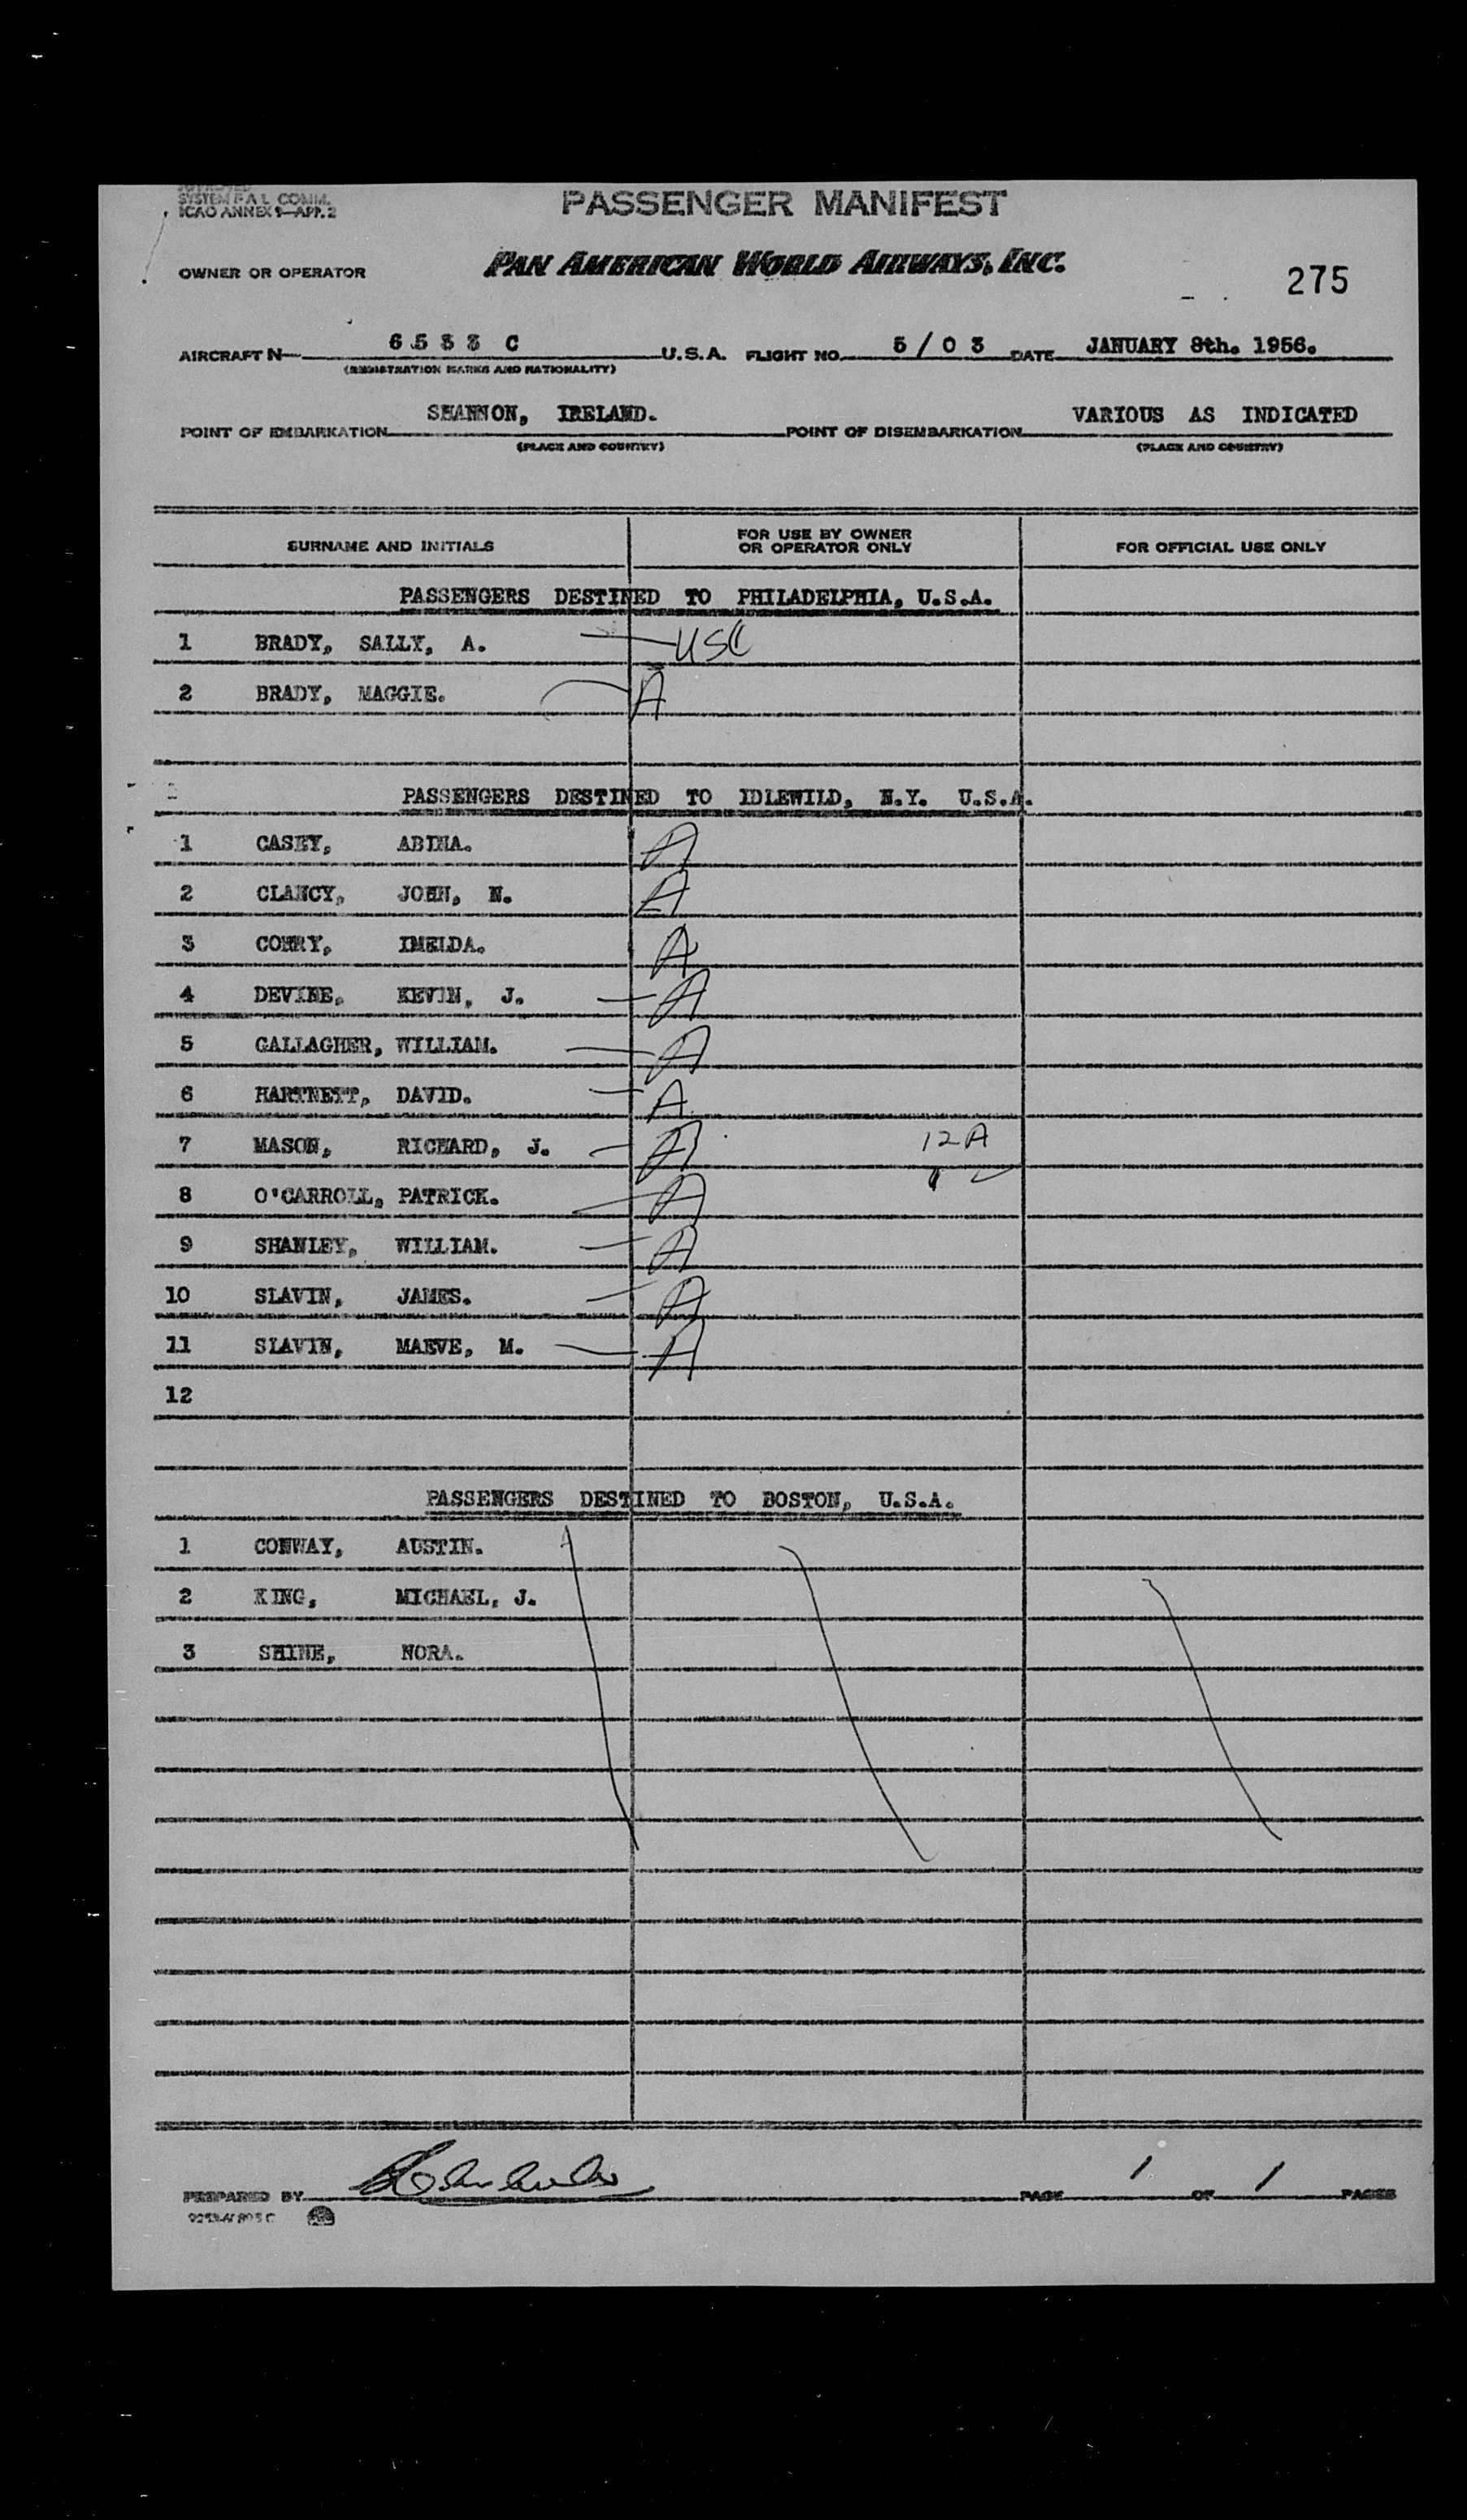 SYSTEM F A L COMM.
ICAO ANNEX 9—APP. 2
PASSENGER MANIFEST
OWNER OR OPERATOR PAN AMERICAN WORLD AIRWAYS, INC.
275
AIRCRAFT N— 6533 C U.S.A. FLIGHT NO. 5/03 DATE JANUARY 8th. 1956.
(REGISTRATION MARKS AND NATIONALITY)
POINT OF EMBARKATION SHANNON, IRELAND. POINT OF DISEMBARKATION VARIOUS AS INDICATED
(PLACE AND COUNTRY) (PLACE AND COUNTRY)
SURNAME AND INITIALS FOR USE BY OWNER OR OPERATOR ONLY FOR OFFICIAL USE ONLY
PASSENGERS DESTINED TO PHILADELPHIA, U.S.A.
1 BRADY, SALLY, A. USC
2 BRADY, MAGGIE. A
PASSENGERS DESTINED TO IDLEWILD, N.Y. U.S.A.
1 CASEY, ABINA. A
2 CLANCY, JOHN, N. A
3 CORRY, IMELDA. A
4 DEVINE, KEVIN, J. A
5 GALLAGHER, WILLIAM. A
6 HARTNETT, DAVID. A
7 MASON, RICHARD, J. A 12A
8 O'CARROLL, PATRICK. A
9 SHANLEY, WILLIAM. A
10 SLAVIN, JAMES. A
11 SLAVIN, MAEVE, M. A
12
PASSENGERS DESTINED TO BOSTON, U.S.A.
1 CONWAY, AUSTIN.
2 KING, MICHAEL, J.
3 SHINE, NORA.
PREPARED BY PAGE 1 OF 1 PAGES